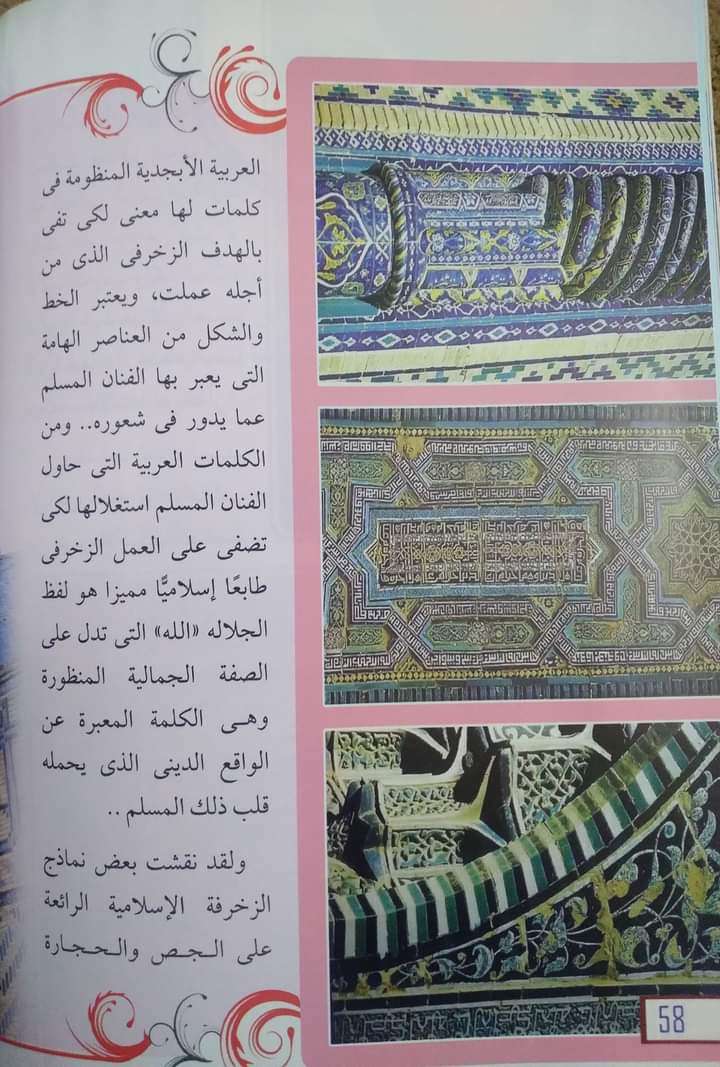 العربية الأبجدية المنظومة فى
كلمات لها معنى لكى تفى
بالهدف الزخرفى الذى من
أجله عملت، ويعتبر الخط
والشكل من العناصر الهامة
التى يعبر بها الفنان المسلم
عما يدور فى شعوره.. ومن
الكلمات العربية التى حاول
الفنان المسلم استغلالها لكى
تضفى على العمل الزخرفى
طابعًا إسلاميًّا مميزا هو لفظ
الجلاله «الله» التى تدل على
الصفة الجمالية المنظورة
وهـى الكلمة المعبرة عن
الواقع الدينى الذى يحمله
قلب ذلك المسلم ..
ولقد نقشت بعض نماذج
الزخرفة الإسلامية الرائعة
على الـجـص والـحـجـارة
58